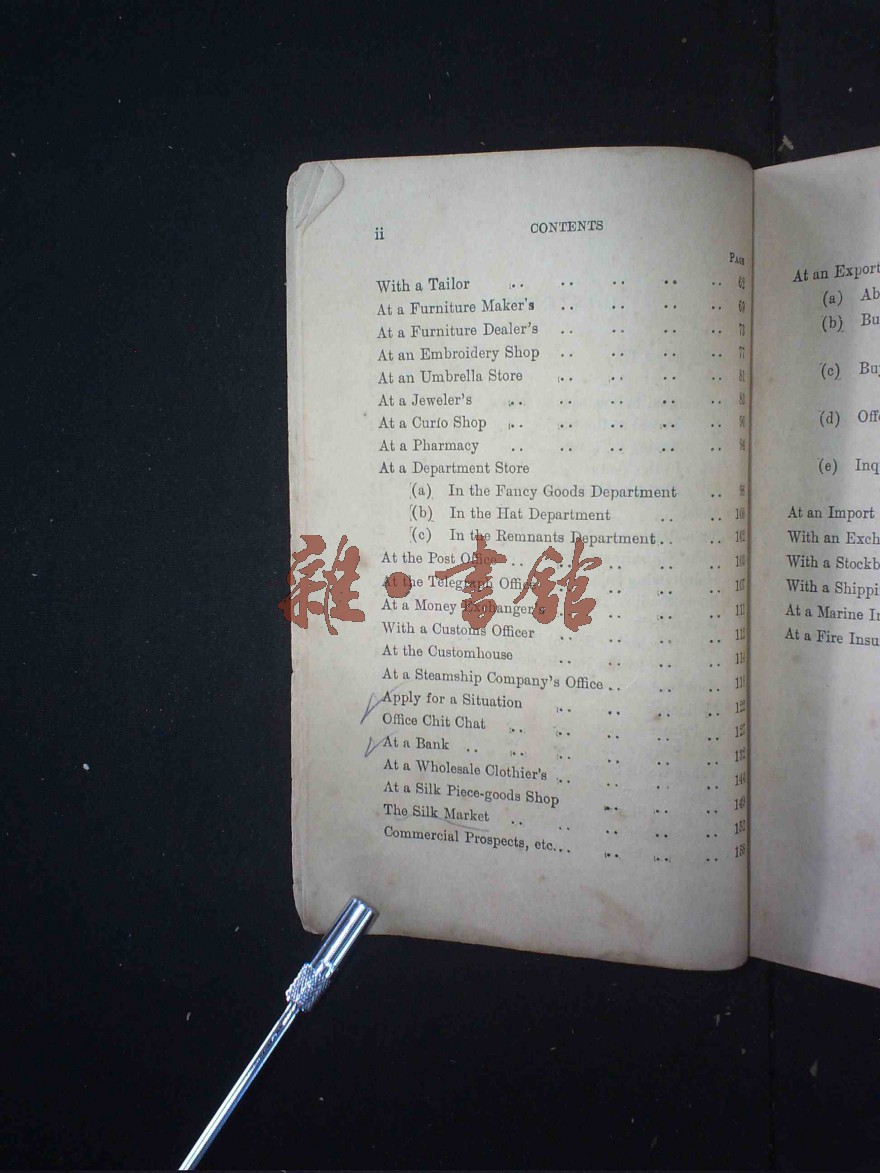 ii CONTENTS
PAGE
With a Tailor .. .. .. .. .. 62
At a Furniture Maker's .. .. .. .. 69
At a Furniture Dealer's .. .. .. .. 73
At an Embroidery Shop .. .. .. .. 77
At an Umbrella Store .. .. .. .. 81
At a Jeweler's .. .. .. .. ..
At a Curio Shop .. .. .. .. ..
At a Pharmacy .. .. .. .. ..
At a Department Store
(a) In the Fancy Goods Department ..
(b) In the Hat Department .. .. 100
(c) In the Remnants Department .. .. 102
At the Post Office .. .. .. .. ..
At the Telegraph Office .. .. .. 107
At a Money Exchanger's .. .. ..
With a Customs Officer .. .. .. ..
At the Customhouse .. .. .. .. 114
At a Steamship Company's Office .. .. ..
Apply for a Situation .. .. .. .. 122
Office Chit Chat .. .. .. .. .. 127
At a Bank .. .. .. .. .. .. 132
At a Wholesale Clothier's .. .. .. .. 144
At a Silk Piece-goods Shop .. .. .. 149
The Silk Market .. .. .. .. .. 152
Commercial Prospects, etc... .. .. .. 158
At an Export
(a)
(b)
(c)
(d)
(e)
At an Import
With an
With a
With a
At a Marine
At a Fire
雜·書館